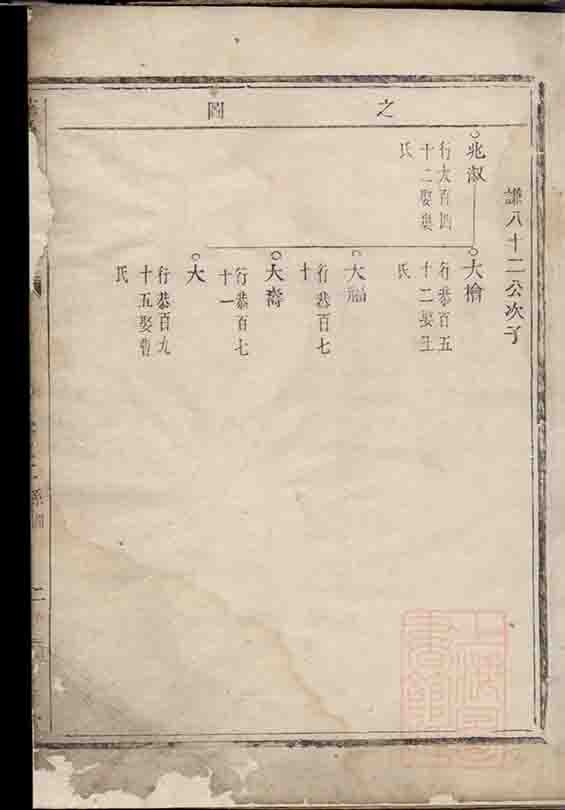 之圖
謙八十二公次子
兆淑
行太百四
十二娶
氏
大檜
行恭百五
十二娶王
氏
大福
行恭百七
十
大裔
行恭百七
十一
大
行恭百九
十五娶曹
氏
系圖
二